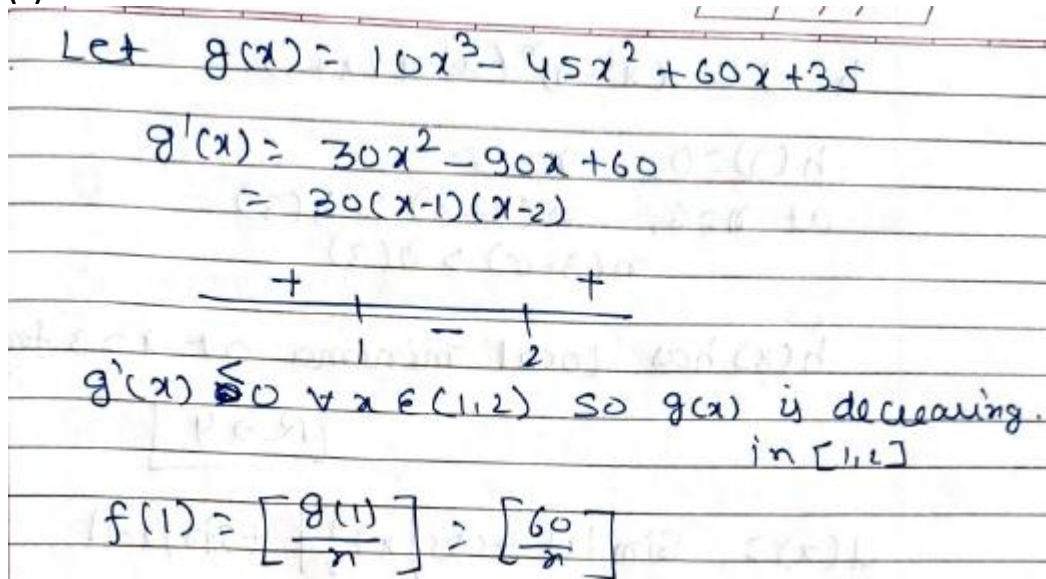 Let g(x) = 10x³ - 45x² + 60x + 35
g'(x) = 30x² - 90x + 60
= 30(x-1)(x-2)
+ +
-
1 2
g'(x) ≤ 0 ∀ x ∈ (1,2) so g(x) is decreasing.
in [1,2]
f(1) = [g(1)/n] = [60/n]